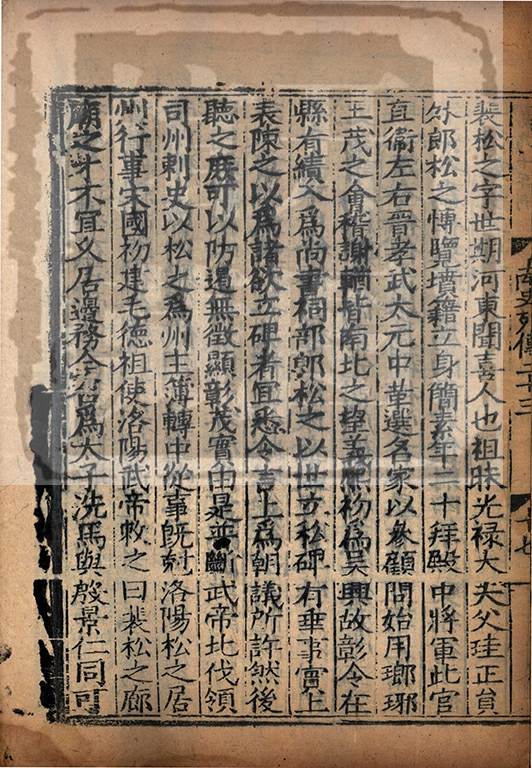 裴松之字世期河東聞喜人也祖昧光禄大夫父珪正貟
外郎松之愽覽墳籍立身簡素年二十拜殿中將軍此官
直衞左右晉孝武太元中革選名家以叅顧問始用瑯瑘
王茂之會稽謝輶皆南北之望義熈初爲吴興故彰令在
縣有績入爲尚書祠部郎松之以世立私碑有乖事實上
表陳之以爲諸欲立碑者宜悉令言上爲朝議所許然後
聽之庻可以防遏無徵顯彰茂實由是並斷武帝北伐領
司州刺史以松之爲州主簿轉中從事既尅洛陽松之居
州行事宋國初建毛德祖使洛陽武帝敕之曰裴松之廊
廟之才不宜乆居邊務今召爲太子洗馬與殷景仁同可
南史傳二十三